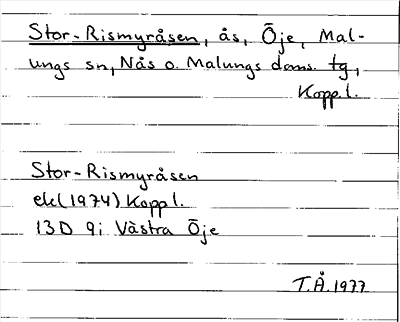 Stor-Rismyråsen, ås, Öje, Mal-
ungs sn, Nås o. Malungs doms. tg,
Kopp.l.
Stor-Rismyråsen
ek(1974) Kopp l.
13D 9i Västra Öje
T.Å.1977